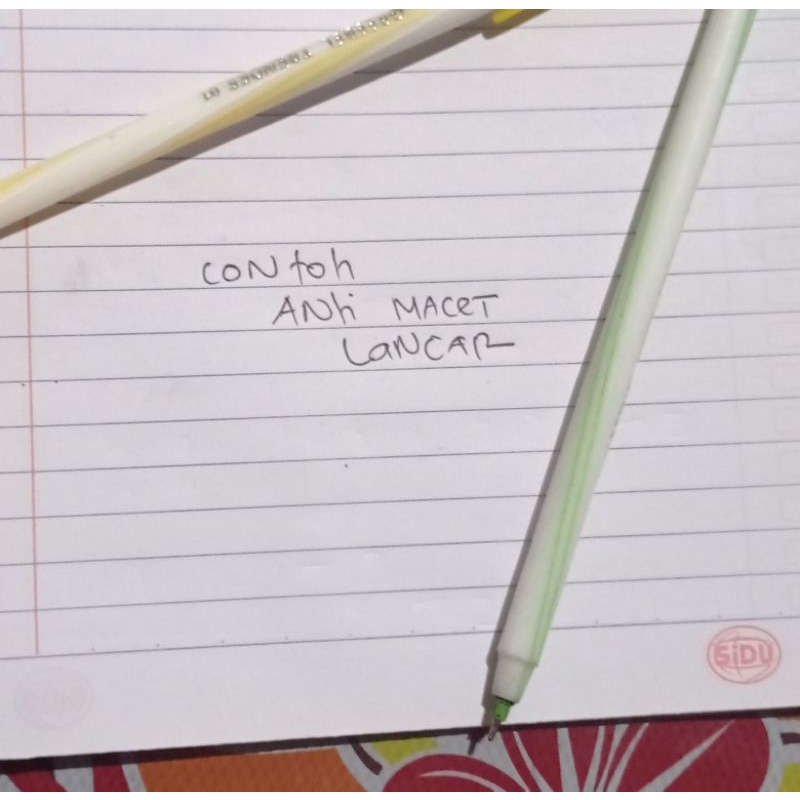 CONtoh
ANti MACeT
LaNCAR
SiDU